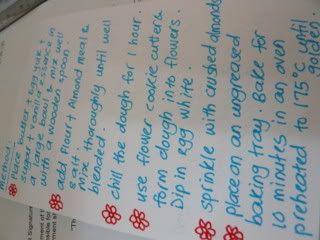 method:
Place butter + egg yolk +
sugar + vanilla essence in
a large bowl & mix well
with a wooden spoon
add flour + Almond meal &
salt.
Mix thoroughly until well
blended.
chill the dough for 1 hour.
use flower cookie cutter &
form dough into flowers.
Dip in egg white.
sprinkle with crushed almonds
place on an ungreased
baking tray. Bake for
10 minutes in an oven
preheated to 175°C until
golden.
Signature